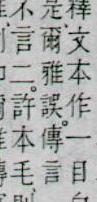 釋文本作一目
是爾雅誤。傳言
不言二。許本毛